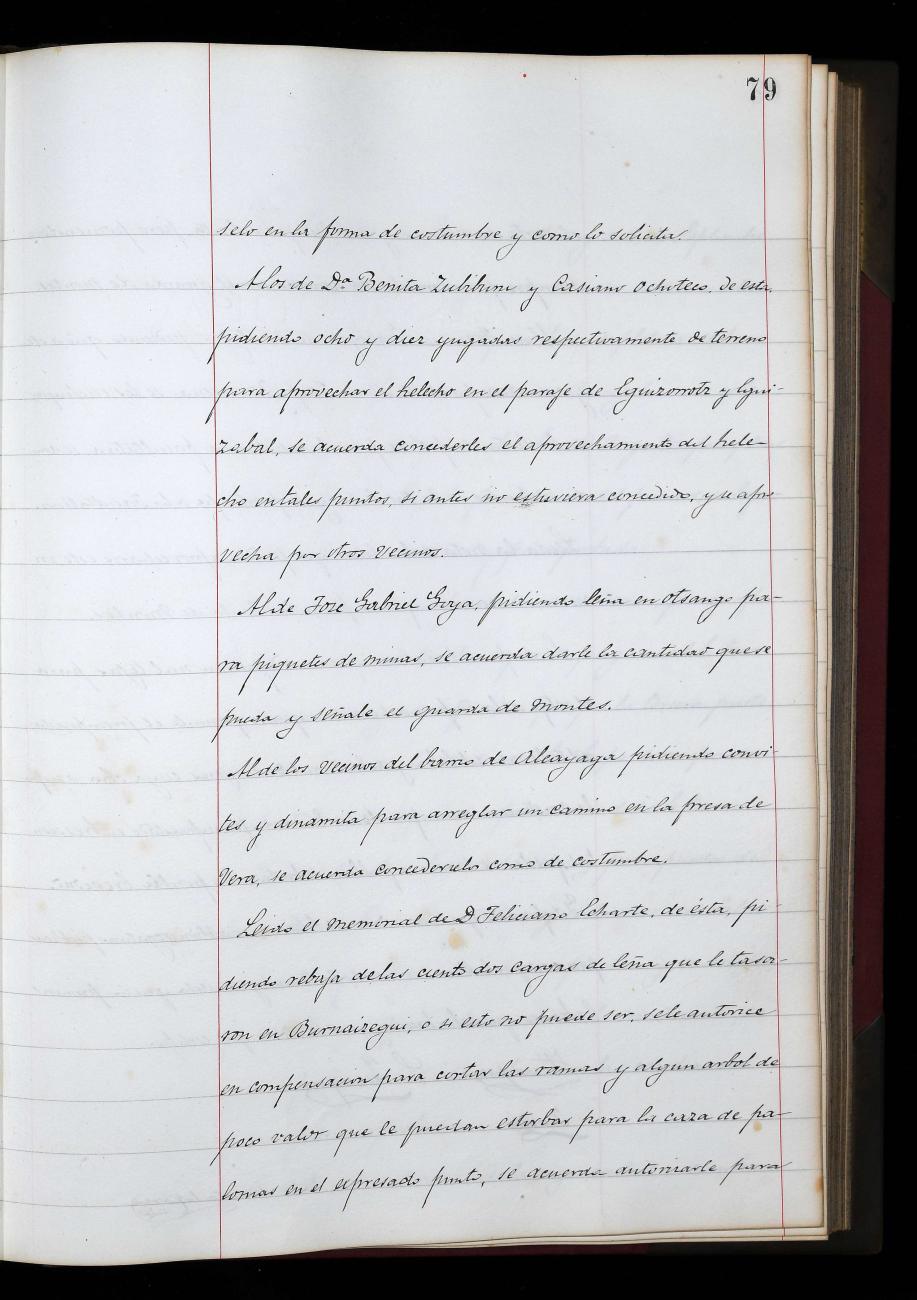 79
selo en la forma de costumbre y como lo solicita.
A los de Dª Benita Zubiburu y Casiano Ochoteco, de esta,
pidiendo ocho y diez yugadas respectivamente de terreno
para aprovechar el helecho en el paraje de Eguizorrotz y Egui-
zabal, se acuerda concederles el aprovechamiento del hele-
cho en tales puntos, si antes no estuviera concedido, y se apro
vecha por otros vecinos.
Al de Jose Gabriel Goya, pidiendo leña en Otsango pa-
ra piquetes de minas, se acuerda darle la cantidad que se
pueda y señale el guarda de montes.
Al de los vecinos del barrio de Alcayaga pidiendo convi-
tes y dinamita para arreglar un camino en la presa de
Vera, se acuerda concederselo como de costumbre.
Leido el memorial de D Feliciano Echarte, de ésta, pi-
diendo rebaja de las ciento dos cargas de leña que le tasa-
ron en Burnaizegui, o si esto no puede ser, se le autorice
en compensacion para cortar las ramas y algun arbol de
poco valor que le puedan estorbar para la caza de pa-
lomas en el expresado punto, se acuerda autorizarle para